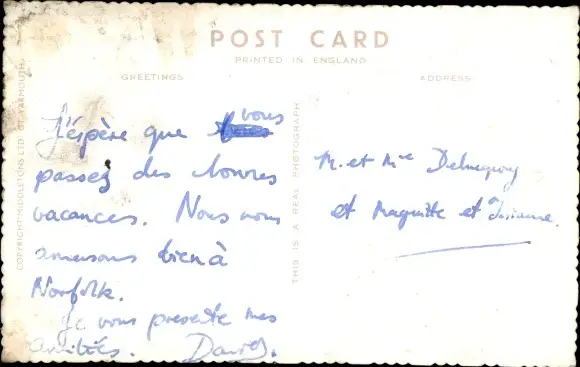 POST CARD
PRINTED IN ENGLAND
GREETINGS
ADDRESS
COPYRIGHT MIDDLETONS LTD. GT. YARMOUTH.
THIS IS A REAL PHOTOGRAPH
J'éspère que vous
passez des bonnes
vacances. Nous nous
amusons bien à
Norfolk.
Je vous presente mes
amitiés. David.
M. et Mme
et Maguitte et Josiane.